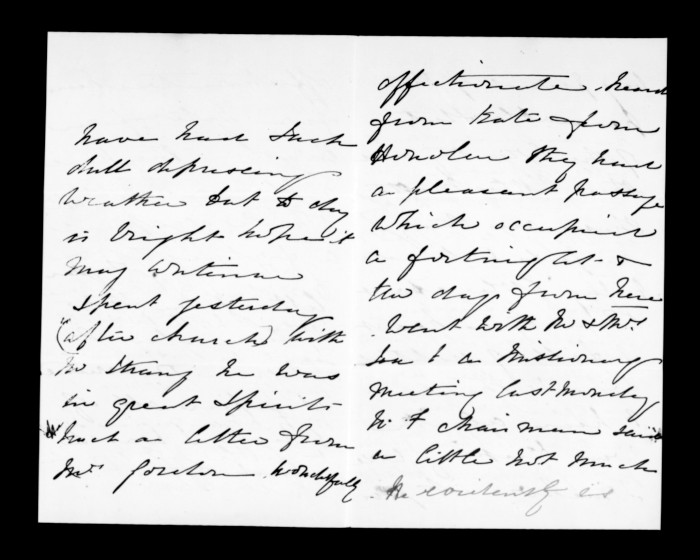 have had such
dull depressing
weather but to day
is bright hope it
may continue
Spent yesterday
(after church) with
Mr Strang he was
in great spirits
had a letter from
Mrs Gordon wonderfully
affectionate. heard
from Kate & from
Honolulu they had
a pleasant passage
which occupied
a fortnight &
two days from here
. Went with Mr & Mrs
to a Missionary
Meeting last Monday
Mr F Chairman said
a little not much
. He evidently is